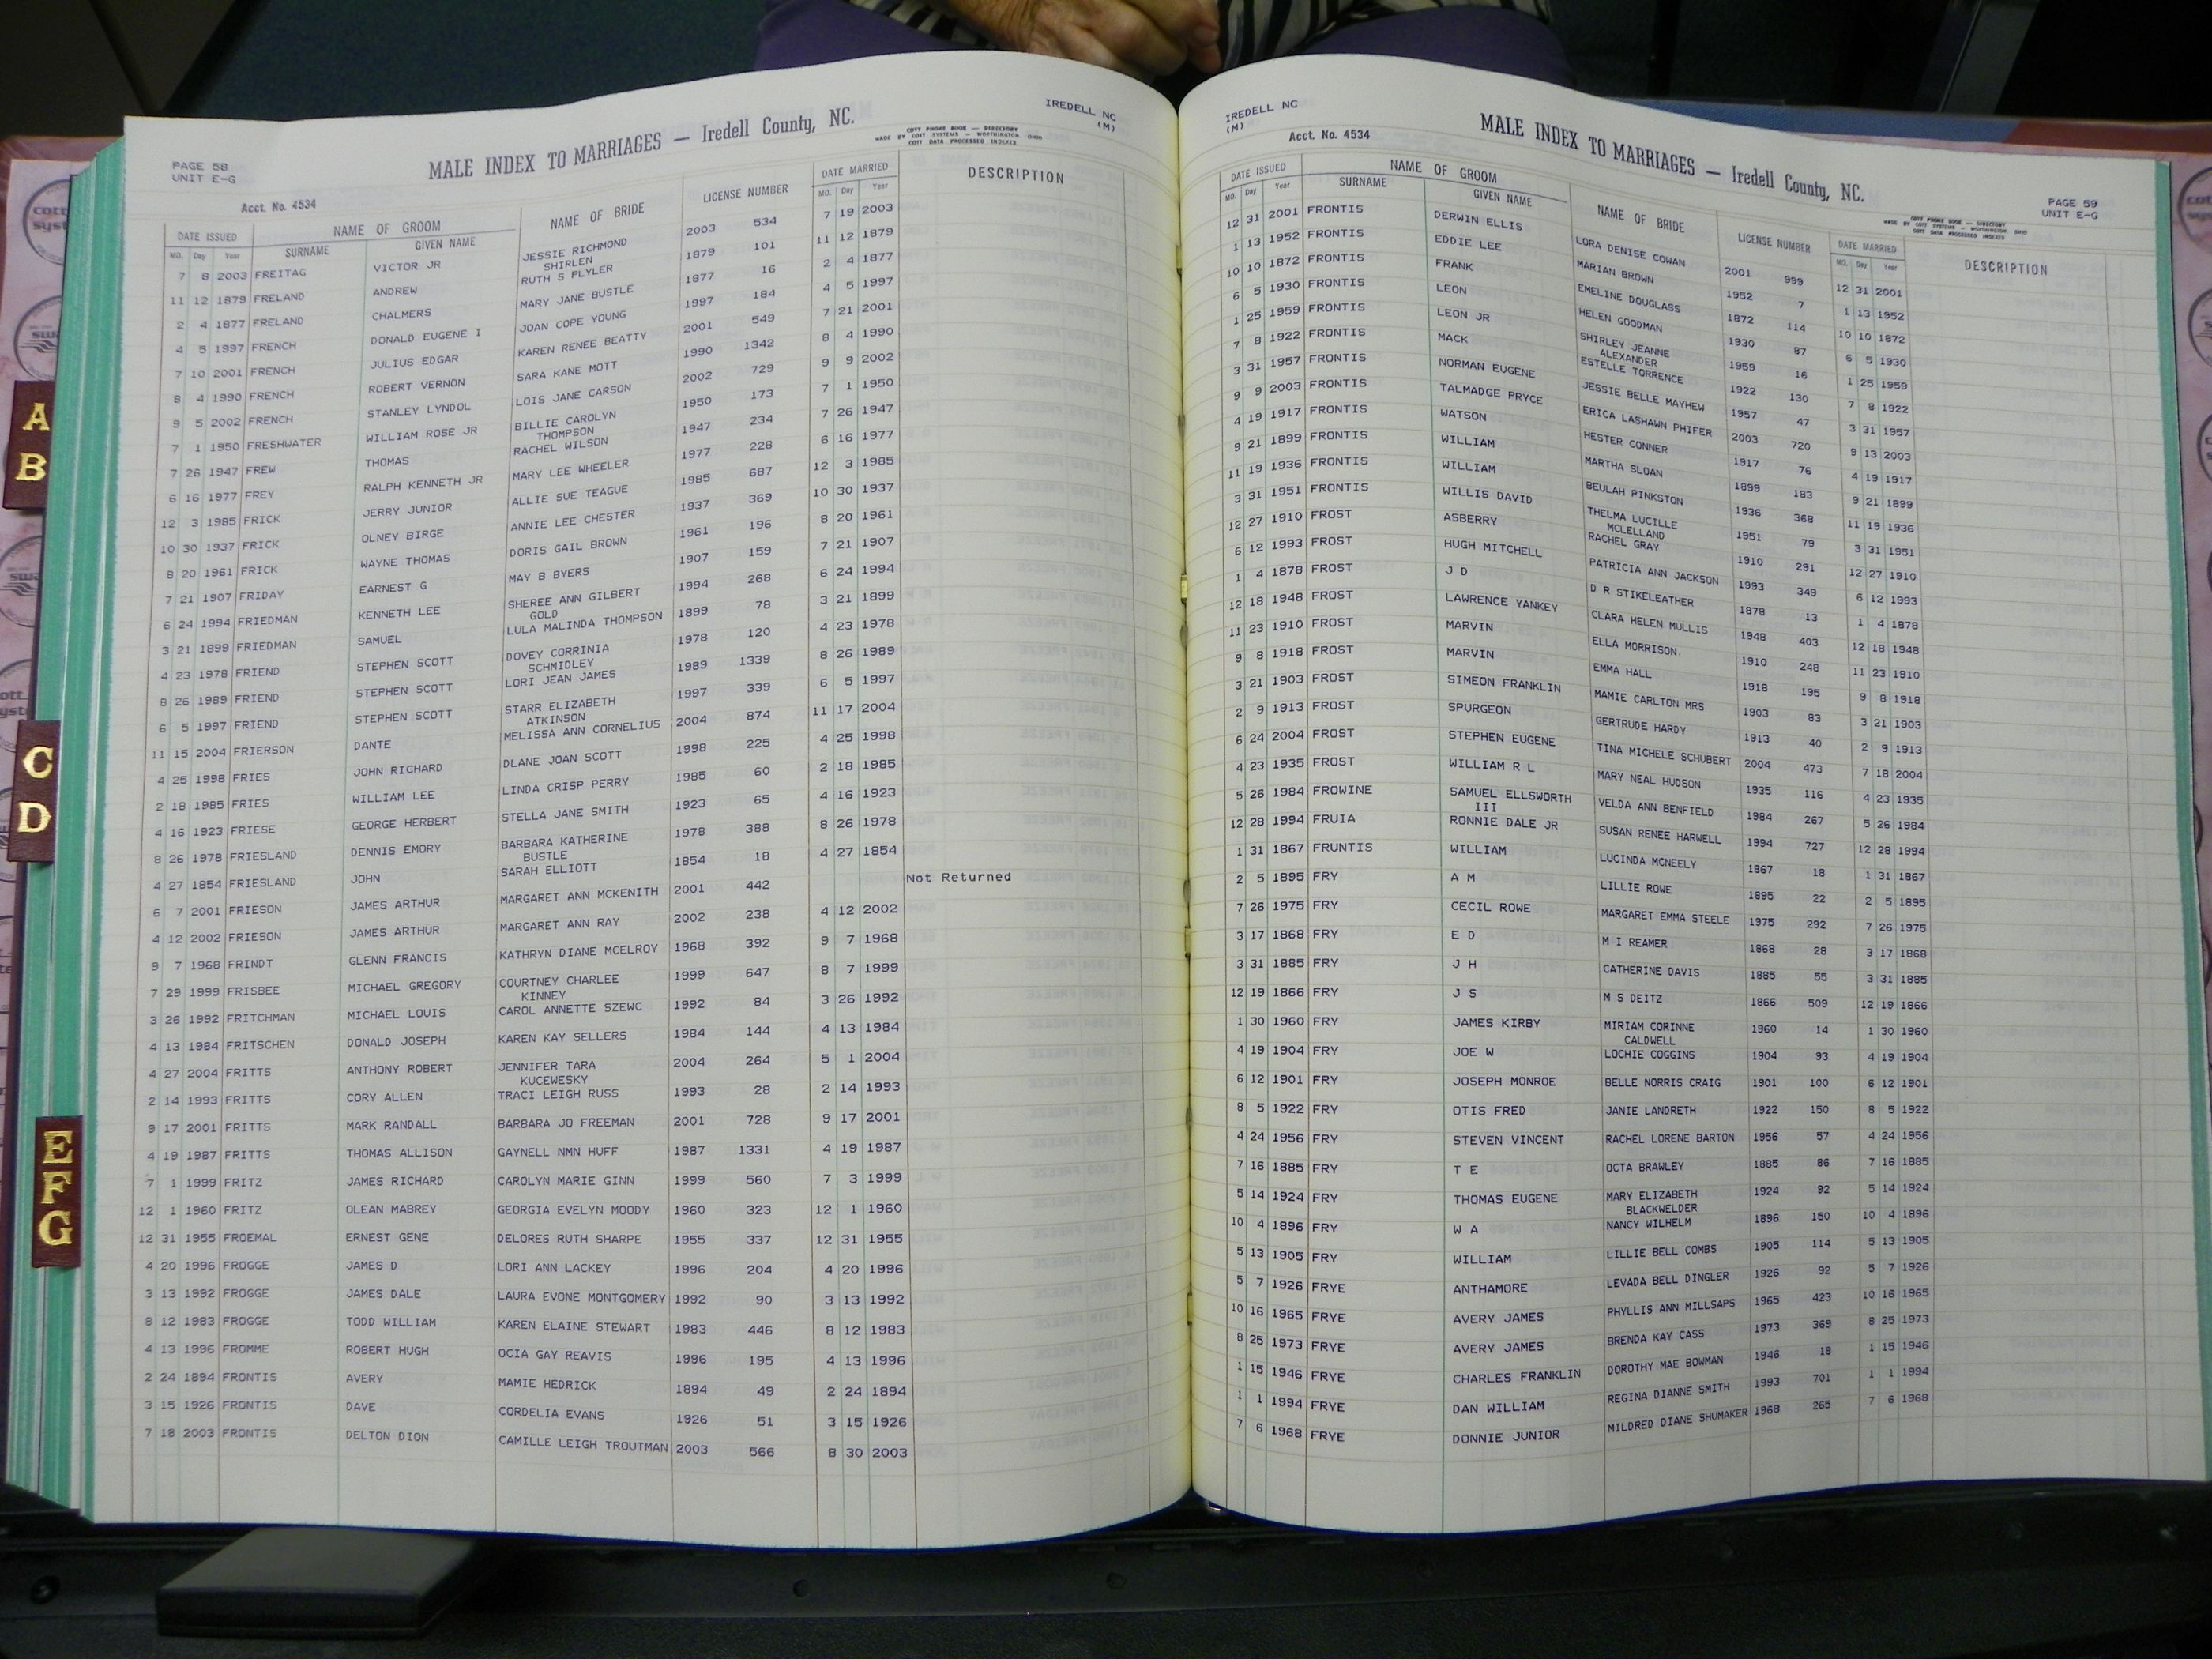 PAGE 58
UNIT E-G
Acct. No. 4534
MALE INDEX TO MARRIAGES — Iredell County, NC.
COTT PHONE BOOK — DIRECTORY
MADE BY COTT SYSTEMS — WORTHINGTON OHIO
COTT DATA PROCESSED INDEXES
IREDELL NC
(M)
DATE ISSUED NAME OF GROOM NAME OF BRIDE LICENSE NUMBER DATE MARRIED DESCRIPTION
MO. Day Year SURNAME GIVEN NAME MO. Day Year
7 8 2003 FREITAG VICTOR JR JESSIE RICHMOND 2003 534 7 19 2003
SHIRLEN
11 12 1879 FRELAND ANDREW RUTH S PLYLER 1879 101 11 12 1879
2 4 1877 FRELAND CHALMERS MARY JANE BUSTLE 1877 16 2 4 1877
4 5 1997 FRENCH DONALD EUGENE I JOAN COPE YOUNG 1997 184 4 5 1997
7 10 2001 FRENCH JULIUS EDGAR KAREN RENEE BEATTY 2001 549 7 21 2001
8 4 1990 FRENCH ROBERT VERNON SARA KANE MOTT 1990 1342 8 4 1990
9 5 2002 FRENCH STANLEY LYNDOL LOIS JANE CARSON 2002 729 9 9 2002
7 1 1950 FRESHWATER WILLIAM ROSE JR BILLIE CAROLYN 1950 173 7 1 1950
THOMPSON
7 26 1947 FREW THOMAS RACHEL WILSON 1947 234 7 26 1947
6 16 1977 FREY RALPH KENNETH JR MARY LEE WHEELER 1977 228 6 16 1977
12 3 1985 FRICK JERRY JUNIOR ALLIE SUE TEAGUE 1985 687 12 3 1985
10 30 1937 FRICK OLNEY BIRGE ANNIE LEE CHESTER 1937 369 10 30 1937
8 20 1961 FRICK WAYNE THOMAS DORIS GAIL BROWN 1961 196 8 20 1961
7 21 1907 FRIDAY EARNEST G MAY B BYERS 1907 159 7 21 1907
6 24 1994 FRIEDMAN KENNETH LEE SHEREE ANN GILBERT 1994 268 6 24 1994
GOLD
3 21 1899 FRIEDMAN SAMUEL LULA MALINDA THOMPSON 1899 78 3 21 1899
4 23 1978 FRIEND STEPHEN SCOTT DOVEY CORRINIA 1978 120 4 23 1978
SCHMIDLEY
8 26 1989 FRIEND STEPHEN SCOTT LORI JEAN JAMES 1989 1339 8 26 1989
6 5 1997 FRIEND STEPHEN SCOTT STARR ELIZABETH 1997 339 6 5 1997
ATKINSON
11 15 2004 FRIERSON DANTE MELISSA ANN CORNELIUS 2004 874 11 17 2004
4 25 1998 FRIES JOHN RICHARD DLANE JOAN SCOTT 1998 225 4 25 1998
2 18 1985 FRIES WILLIAM LEE LINDA CRISP PERRY 1985 60 2 18 1985
4 16 1923 FRIESE GEORGE HERBERT STELLA JANE SMITH 1923 65 4 16 1923
8 26 1978 FRIESLAND DENNIS EMORY BARBARA KATHERINE 1978 388 8 26 1978
BUSTLE
4 27 1854 FRIESLAND JOHN SARAH ELLIOTT 1854 18 4 27 1854
6 7 2001 FRIESON JAMES ARTHUR MARGARET ANN MCKENITH 2001 442 Not Returned
4 12 2002 FRIESON JAMES ARTHUR MARGARET ANN RAY 2002 238 4 12 2002
9 7 1968 FRINDT GLENN FRANCIS KATHRYN DIANE MCELROY 1968 392 9 7 1968
7 29 1999 FRISBEE MICHAEL GREGORY COURTNEY CHARLEE 1999 647 8 7 1999
KINNEY
3 26 1992 FRITCHMAN MICHAEL LOUIS CAROL ANNETTE SZEWC 1992 84 3 26 1992
4 13 1984 FRITSCHEN DONALD JOSEPH KAREN KAY SELLERS 1984 144 4 13 1984
4 27 2004 FRITTS ANTHONY ROBERT JENNIFER TARA 2004 264 5 1 2004
KUCEWESKY
2 14 1993 FRITTS CORY ALLEN TRACI LEIGH RUSS 1993 28 2 14 1993
9 17 2001 FRITTS MARK RANDALL BARBARA JO FREEMAN 2001 728 9 17 2001
4 19 1987 FRITTS THOMAS ALLISON GAYNELL NMN HUFF 1987 1331 4 19 1987
7 1 1999 FRITZ JAMES RICHARD CAROLYN MARIE GINN 1999 560 7 3 1999
12 1 1960 FRITZ OLEAN MABREY GEORGIA EVELYN MOODY 1960 323 12 1 1960
12 31 1955 FROEMAL ERNEST GENE DELORES RUTH SHARPE 1955 337 12 31 1955
4 20 1996 FROGGE JAMES D LORI ANN LACKEY 1996 204 4 20 1996
3 13 1992 FROGGE JAMES DALE LAURA EVONE MONTGOMERY 1992 90 3 13 1992
8 12 1983 FROGGE TODD WILLIAM KAREN ELAINE STEWART 1983 446 8 12 1983
4 13 1996 FROMME ROBERT HUGH OCIA GAY REAVIS 1996 195 4 13 1996
2 24 1894 FRONTIS AVERY MAMIE HEDRICK 1894 49 2 24 1894
3 15 1926 FRONTIS DAVE CORDELIA EVANS 1926 51 3 15 1926
7 18 2003 FRONTIS DELTON DION CAMILLE LEIGH TROUTMAN 2003 566 8 30 2003
IREDELL NC
(M)
Acct. No. 4534
MALE INDEX TO MARRIAGES — Iredell County, NC.
COTT PHONE BOOK — DIRECTORY
MADE BY COTT SYSTEMS — WORTHINGTON OHIO
COTT DATA PROCESSED INDEXES
PAGE 59
UNIT E-G
DATE ISSUED NAME OF GROOM NAME OF BRIDE LICENSE NUMBER DATE MARRIED DESCRIPTION
MO. Day Year SURNAME GIVEN NAME MO. Day Year
12 31 2001 FRONTIS DERWIN ELLIS LORA DENISE COWAN 2001 999 12 31 2001
1 13 1952 FRONTIS EDDIE LEE MARIAN BROWN 1952 7 1 13 1952
10 10 1872 FRONTIS FRANK EMELINE DOUGLASS 1872 114 10 10 1872
6 5 1930 FRONTIS LEON HELEN GOODMAN 1930 87 6 5 1930
1 25 1959 FRONTIS LEON JR SHIRLEY JEANNE 1959 16 1 25 1959
ALEXANDER
7 8 1922 FRONTIS MACK ESTELLE TORRENCE 1922 130 7 8 1922
3 31 1957 FRONTIS NORMAN EUGENE JESSIE BELLE MAYHEW 1957 47 3 31 1957
9 9 2003 FRONTIS TALMADGE PRYCE ERICA LASHAWN PHIFER 2003 720 9 13 2003
4 19 1917 FRONTIS WATSON HESTER CONNER 1917 76 4 19 1917
9 21 1899 FRONTIS WILLIAM MARTHA SLOAN 1899 183 9 21 1899
11 19 1936 FRONTIS WILLIAM BEULAH PINKSTON 1936 368 11 19 1936
3 31 1951 FRONTIS WILLIS DAVID THELMA LUCILLE 1951 79 3 31 1951
MCLELLAND
12 27 1910 FROST ASBERRY RACHEL GRAY 1910 291 12 27 1910
6 12 1993 FROST HUGH MITCHELL PATRICIA ANN JACKSON 1993 349 6 12 1993
1 4 1878 FROST J D D R STIKELEATHER 1878 13 1 4 1878
12 18 1948 FROST LAWRENCE YANKEY CLARA HELEN MULLIS 1948 403 12 18 1948
11 23 1910 FROST MARVIN ELLA MORRISON 1910 248 11 23 1910
9 8 1918 FROST MARVIN EMMA HALL 1918 195 9 8 1918
3 21 1903 FROST SIMEON FRANKLIN MAMIE CARLTON MRS 1903 83 3 21 1903
2 9 1913 FROST SPURGEON GERTRUDE HARDY 1913 40 2 9 1913
6 24 2004 FROST STEPHEN EUGENE TINA MICHELE SCHUBERT 2004 473 7 18 2004
4 23 1935 FROST WILLIAM R L MARY NEAL HUDSON 1935 116 4 23 1935
5 26 1984 FROWINE SAMUEL ELLSWORTH VELDA ANN BENFIELD 1984 267 5 26 1984
III
12 28 1994 FRUIA RONNIE DALE JR SUSAN RENEE HARWELL 1994 727 12 28 1994
1 31 1867 FRUNTIS WILLIAM LUCINDA MCNEELY 1867 18 1 31 1867
2 5 1895 FRY A M LILLIE ROWE 1895 22 2 5 1895
7 26 1975 FRY CECIL ROWE MARGARET EMMA STEELE 1975 292 7 26 1975
3 17 1868 FRY E D M I REAMER 1868 28 3 17 1868
3 31 1885 FRY J H CATHERINE DAVIS 1885 55 3 31 1885
12 19 1866 FRY J S M S DEITZ 1866 509 12 19 1866
1 30 1960 FRY JAMES KIRBY MIRIAM CORINNE 1960 14 1 30 1960
CALDWELL
4 19 1904 FRY JOE W LOCHIE COGGINS 1904 93 4 19 1904
6 12 1901 FRY JOSEPH MONROE BELLE NORRIS CRAIG 1901 100 6 12 1901
8 5 1922 FRY OTIS FRED JANIE LANDRETH 1922 150 8 5 1922
4 24 1956 FRY STEVEN VINCENT RACHEL LORENE BARTON 1956 57 4 24 1956
7 16 1885 FRY T E OCTA BRAWLEY 1885 86 7 16 1885
5 14 1924 FRY THOMAS EUGENE MARY ELIZABETH 1924 92 5 14 1924
BLACKWELDER
10 4 1896 FRY W A NANCY WILHELM 1896 150 10 4 1896
5 13 1905 FRY WILLIAM LILLIE BELL COMBS 1905 114 5 13 1905
5 7 1926 FRYE ANTHAMORE LEVADA BELL DINGLER 1926 92 5 7 1926
10 16 1965 FRYE AVERY JAMES PHYLLIS ANN MILLSAPS 1965 423 10 16 1965
8 25 1973 FRYE AVERY JAMES BRENDA KAY CASS 1973 369 8 25 1973
1 15 1946 FRYE CHARLES FRANKLIN DOROTHY MAE BOWMAN 1946 18 1 15 1946
1 1 1994 FRYE DAN WILLIAM REGINA DIANNE SMITH 1993 701 1 1 1994
7 6 1968 FRYE DONNIE JUNIOR MILDRED DIANE SHUMAKER 1968 265 7 6 1968
A
B
C
D
E
F
G